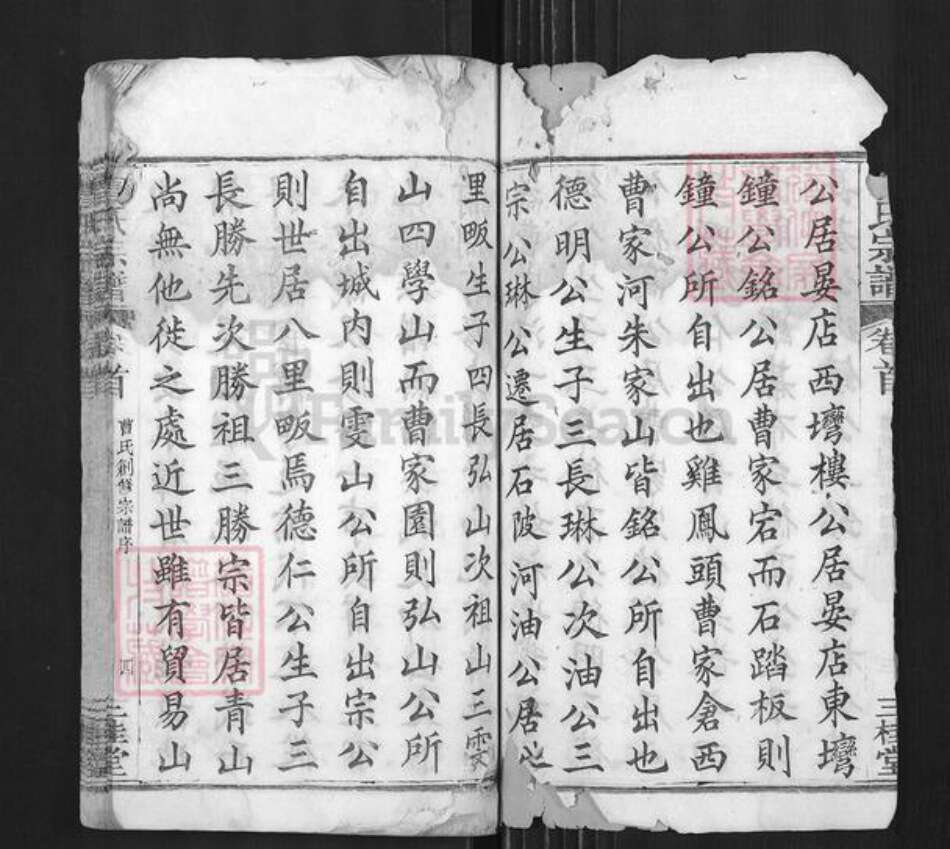 氏宗譜 卷首 三桂堂
公居晏店西壪樓公居晏店東壪
鐘公銘公居曹家宕而石踏板則
鐘公所自出也雞鳳頭曹家倉西
曹家河朱家山皆銘公所自出也
德明公生子三長琳公次油公三
宗公琳公遷居石陂河油公居
里畈生子四長弘山次祖山三雯
山四學山而曹家園則弘山公所
自出城內則雯山公所自出宗公
則世居八里畈焉德仁公生子三
長勝先次勝祖三勝宗皆居青山
尚無他徙之處近世雖有貿易山
氏宗譜 首 曹氏創修宗譜序 四 三桂堂
FamilySearch